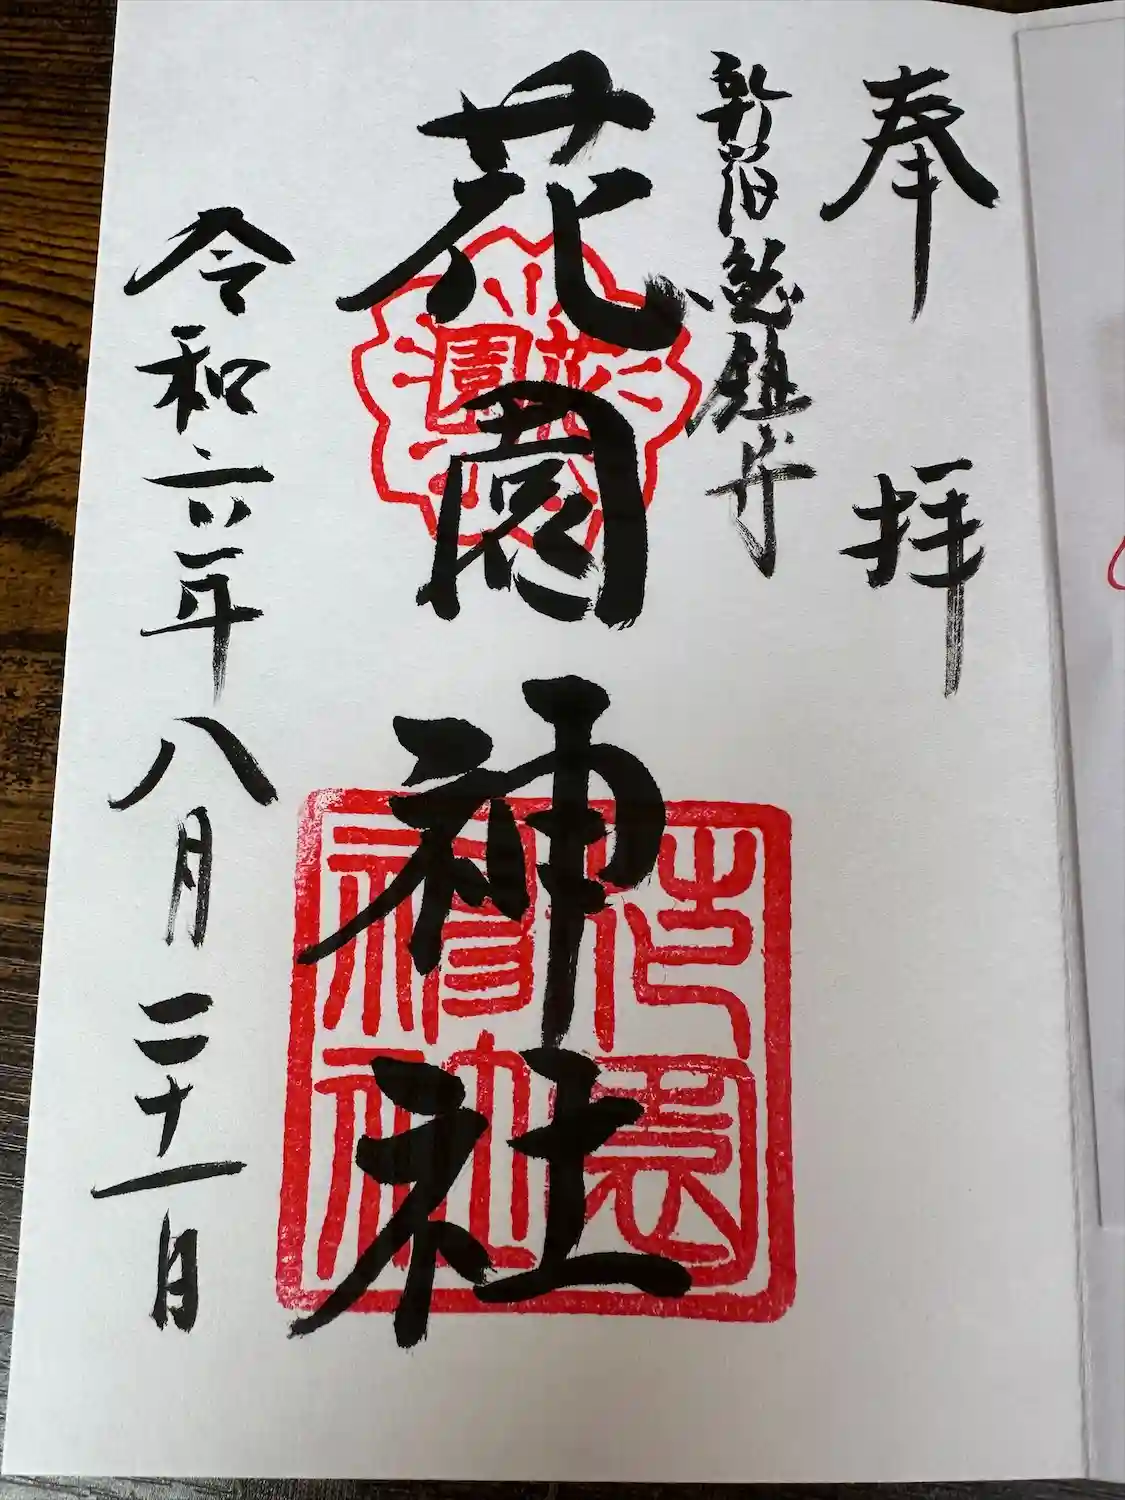 奉拝
新宿総鎮守
花園神社
令和六年八月二十一日
花園
花園神社